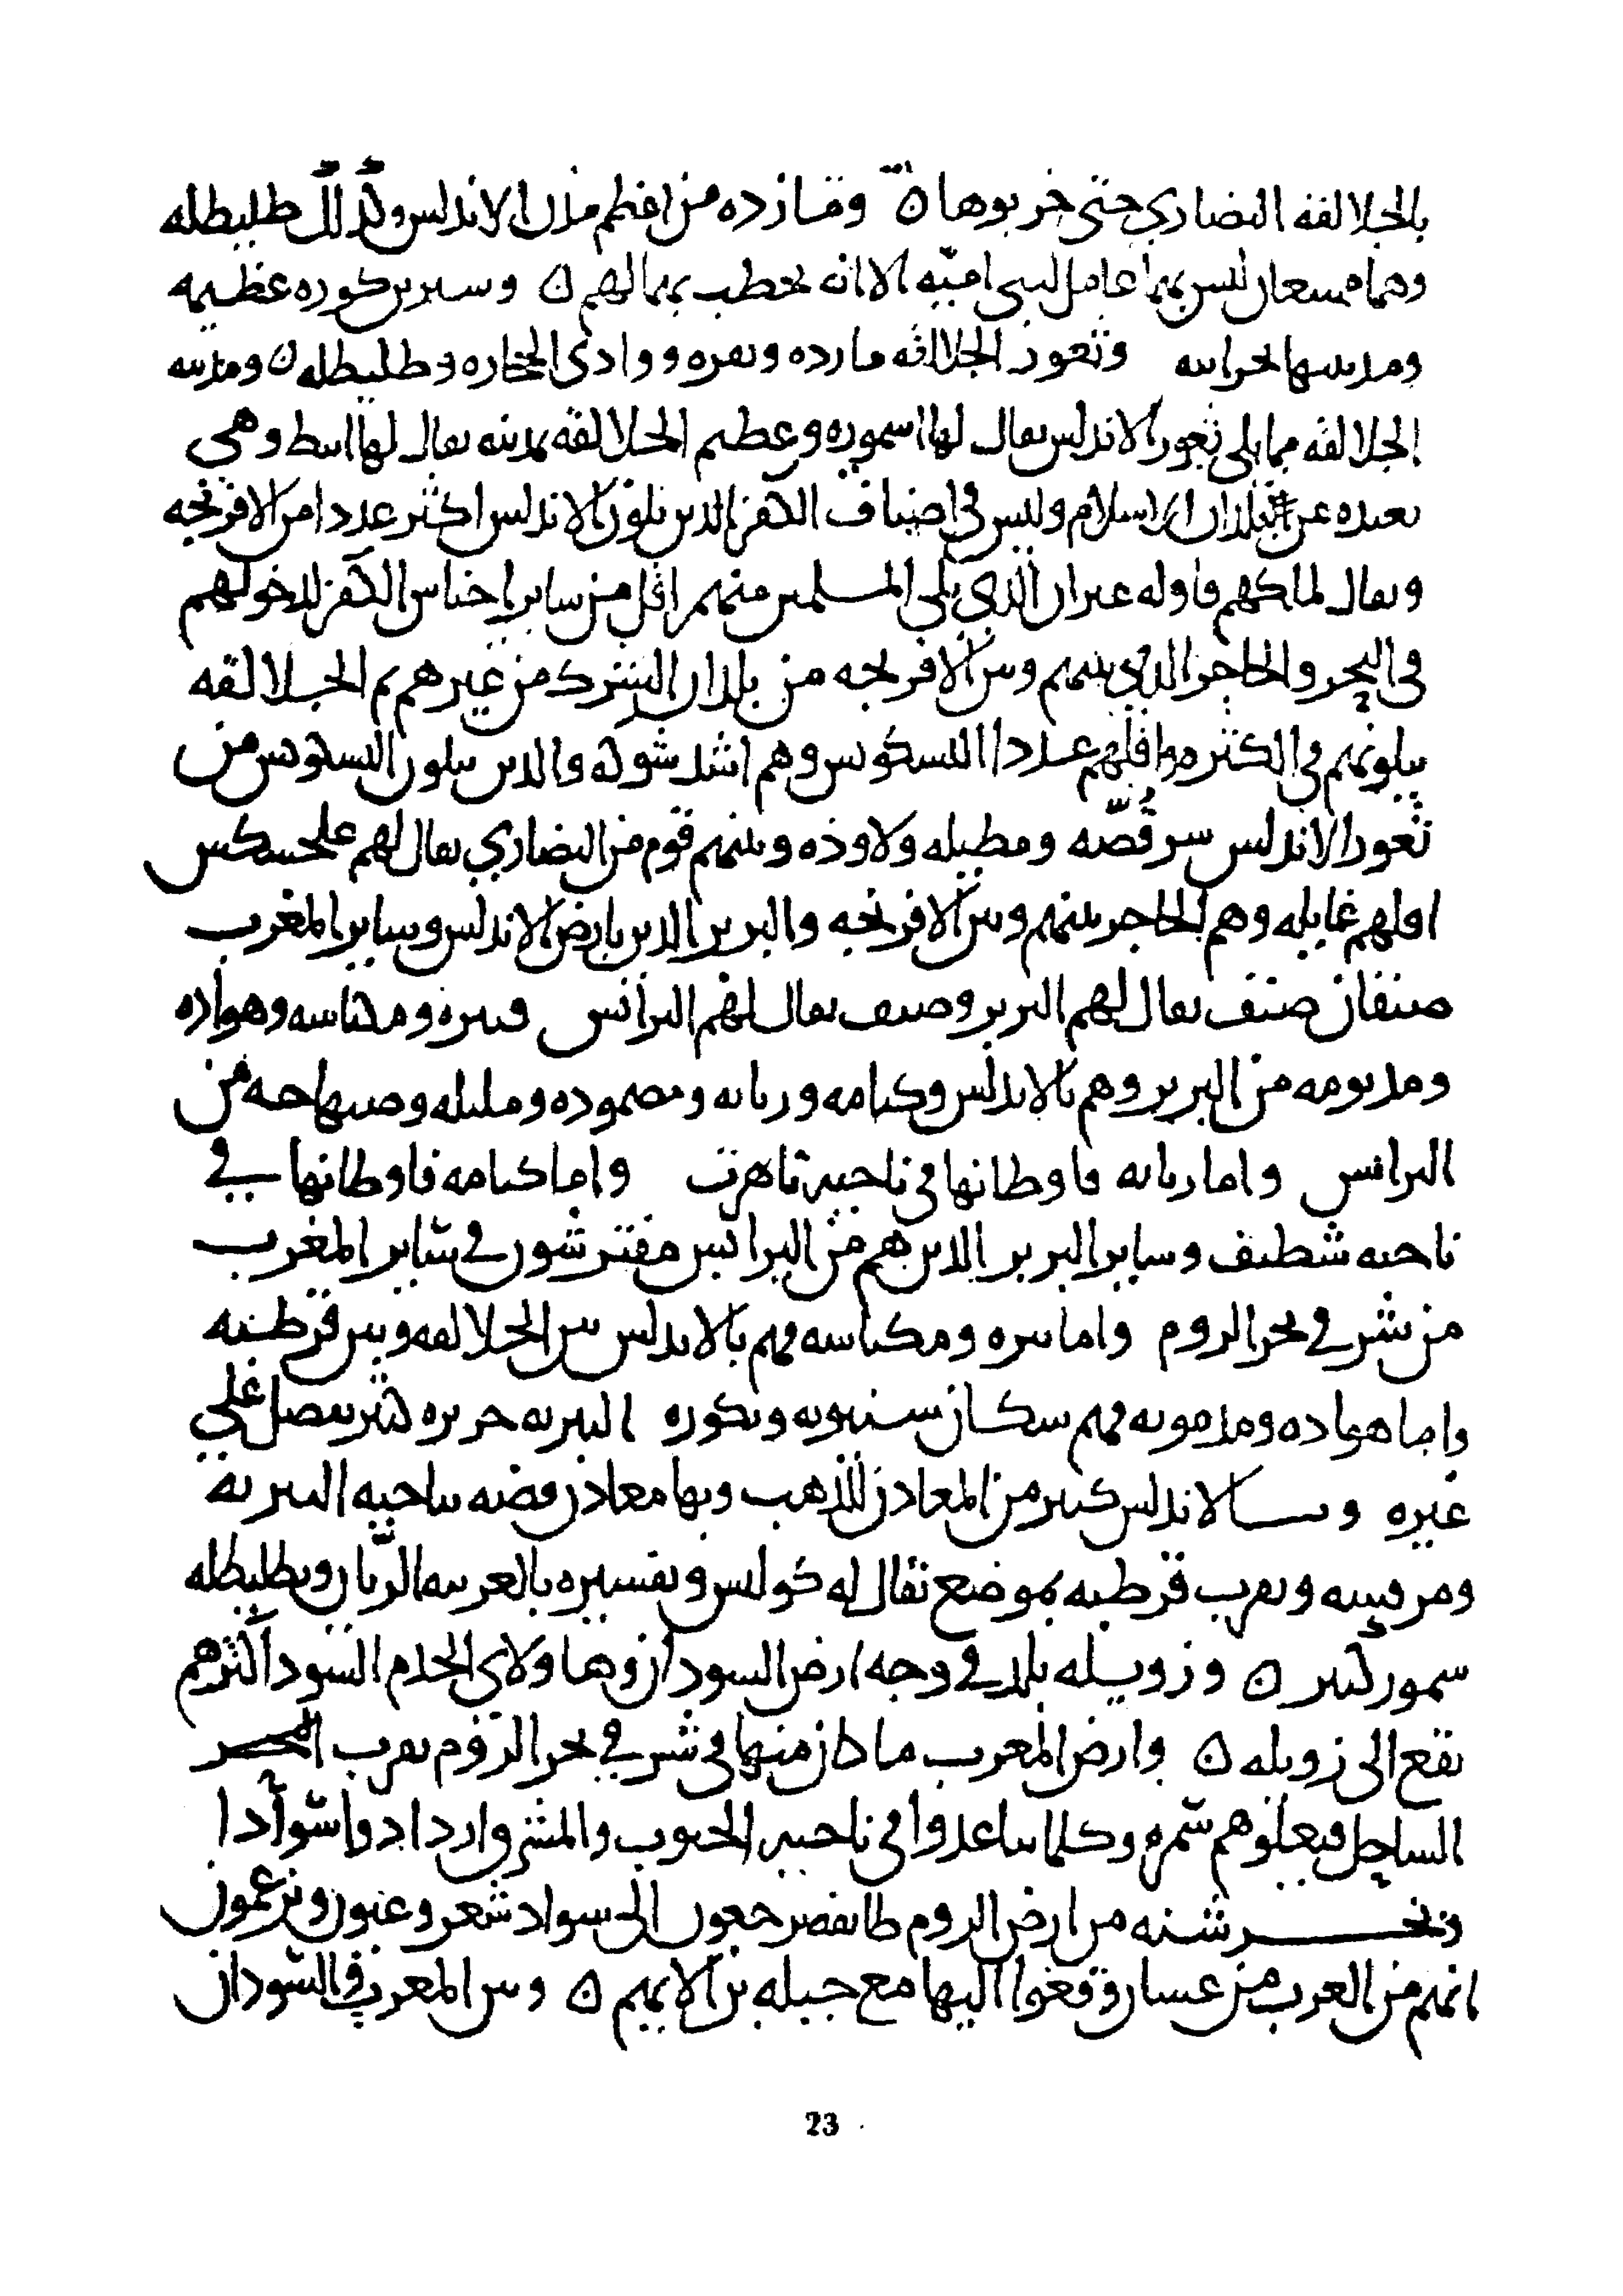 بالجلالقه النصاري حتى خربوها ن ومارده من اعظم مدن الاندلس وكذلك طليطله
وهما ممتنعان ليس بهما عامل لبني اميّه الا انه يخطب بهما لهم ن وسنرين كوره عظيمه
ومدينتها وثغور الجلالقه مارده ونفزه ووادى الحجاره وطليطله ن ومدينه
الجلالقه مما يلي ثغور الاندلس يقال لها اسموره وعظيم الجلالقه بمدينه يقال لها ابيط وهي
بعيده عن بلدان الاسلام وليس في اصناف الكفر الذين يلون الاندلس اكثر عددا من الافرنجه
ويقال لملكهم قاوله غير ان الذي يلي المسلمين منهم اقل من ساير اجناس الكفر لدخولهم
في البحر والحاجز الذي بينهم وبين الافرنجه من بلدان الشرك من غيرهم ثم الجلالقه
يتلونهم في الكثره واقلهم عددا البسكونس وهم اشد شوكه والذين يلون البسكونس من
ثغور الاندلس سرقُصّه وتطيله ولاوذه ويليهم قوم من النصاري يقال لهم علجسكس
اقلهم غايله وهم الحاجز بينهم وبين الافرنجه والبربر الذين بارض الاندلس وساير المغرب
صنفان صنف يقال لهم البتر وصنف يقال لهم البرانس فنفزه ومكناسه وهواره
ومديونه من البتر وهم بالاندلس وكتامه وزناته ومصموده ومليله وصنهاجه من
البرانس واما زناته فاوطانها في ناحيه تاهرت واما كتامه فاوطانها في
ناحيه شطيف وساير البربر الذين هم من البرانس مفترشون في ساير المغرب
من شرقي بحر الروم واما نفزه ومكناسه فهم بالاندلس بين الجلالقه وبين قرطبه
واما هواره ومديونه فهم سكان سنتبريه وبكوره البيره حرير كثير يفضل علي
غيره وبالاندلس كثير من المعادن للذهب وبها معادن فضه بناحيه البيره
ومرسيه وبقرب قرطبه بموضع يقال له كولس وتفسيره بالعربيه وبطليطله
سمور كثير ن وزويله بلد في وجه ارض السودان وهاولاي الخدم السود اكثرهم
يقع الى زويله ن وارض المغرب ما كان منها في شرقي بحر الروم بقرب
الساحل فيعلوهم سمره وكلما تباعدوا في ناحيه الجنوب والمشرق ازدادوا سوادا
شعر وعيون ويزعمون
انهم من العرب من غسان وقعوا اليها مع جبله بن الايهم ن وبين المغرب والسودان
23